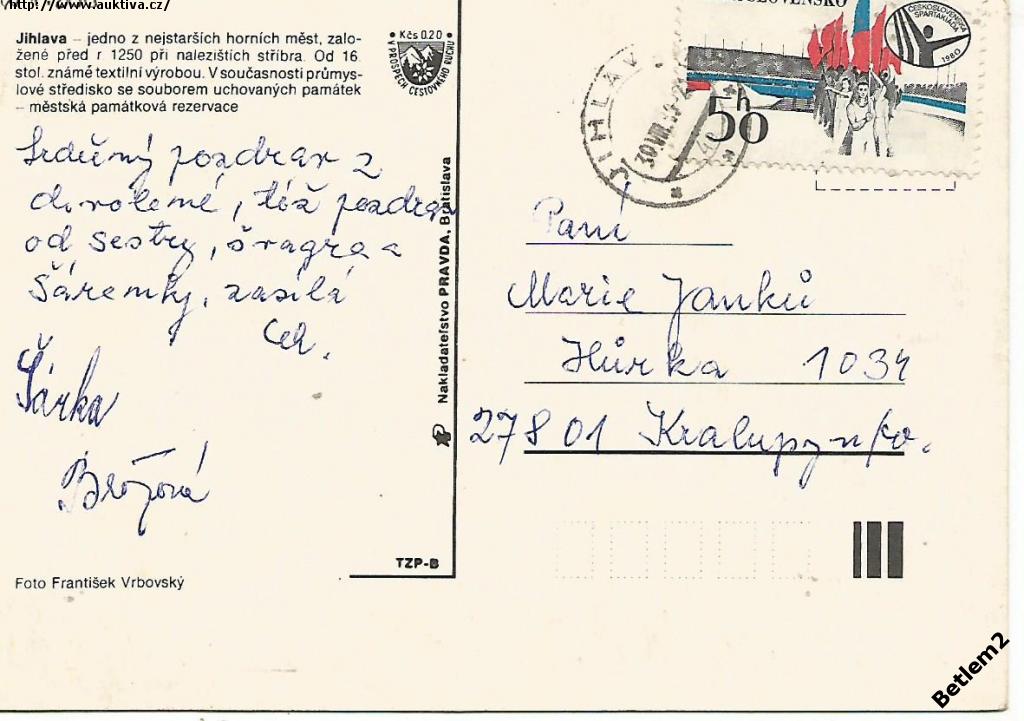 http://www.auktiva.cz/
Jihlava – jedno z nejstarších horních měst, zalo-
žené před r 1250 při nalezištích stříbra. Od 16.
stol. známé textilní výrobou. V současnosti průmys-
lové středisko se souborem uchovaných památek
– městská památková rezervace
• Kčs 0.20 •
V PROSPĚCH CESTOVNÉHO RUCHU
Srdečný pozdrav z
dovolené, též pozdrav
od sestry, švagra a
Šárenky, zasílá
Šárka
Brožová
Foto František Vrbovský
TZP-B
Nakladatelství PRAVDA, Bratislava
ČESKOSLOVENSKÁ
SPARTAKIÁDA
1980
50 h
JIHLAVA
30.VIII.
Paní
Marie Janků
Hůrka 1034
278 01 Kralupy n/V.
Betlem2